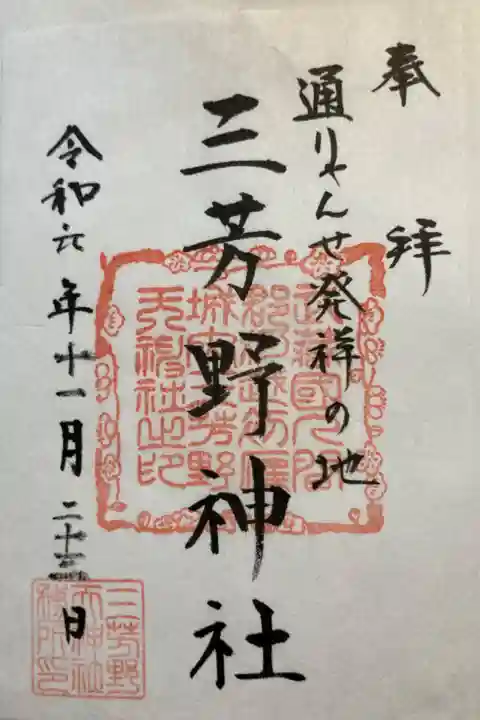 奉拝
通りゃんせ発祥の地
三芳野神社
令和六年十一月二十三日
三芳野
天神社